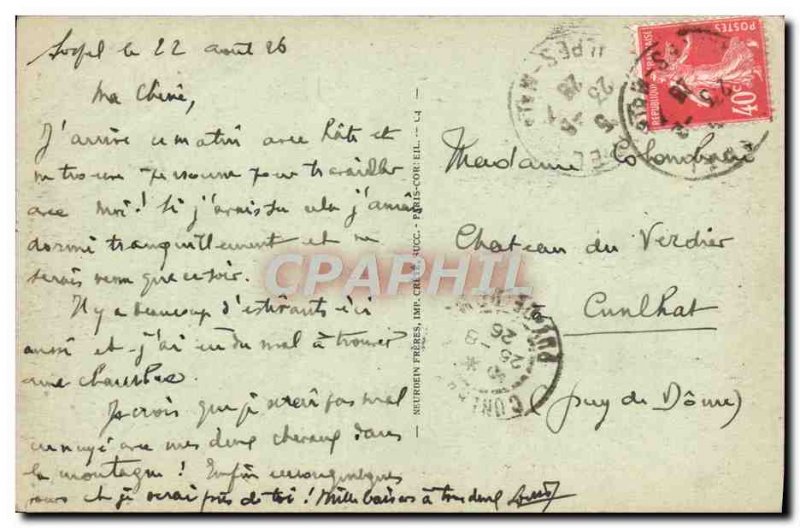 Sospel le 22 août 26
Ma Chérie,
J'arrive ce matin avec hâte et
ne trouve personne pour travailler
avec moi ! Si j'avais su cela j'aurais
dormi tranquillement et ne
serais venu que ce soir.
Il y a beaucoup d'estivants ici
aussi et j'ai eu du mal à trouver
une chambre
Je crois que je serai pas mal
ennuyé avec mes deux chevaux dans
la montagne ! Enfin encore quelques
jours et je serai près de toi ! Mille baisers à tous deux
NEURDEIN FRÈRES, IMP. CRÉTÉ, SUCC. - PARIS-CORBEIL.
CPAPHIL
POSTES
REPUBLIQUE FRANÇAISE
40c
Madame
Chateau du Verdier
Cunlhat
(Puy de Dôme)
PUY-DE-DOME
25 -8
26